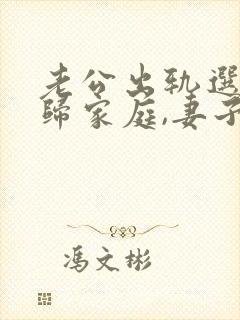 老公出轨選
歸家庭,妻子
馮文彬